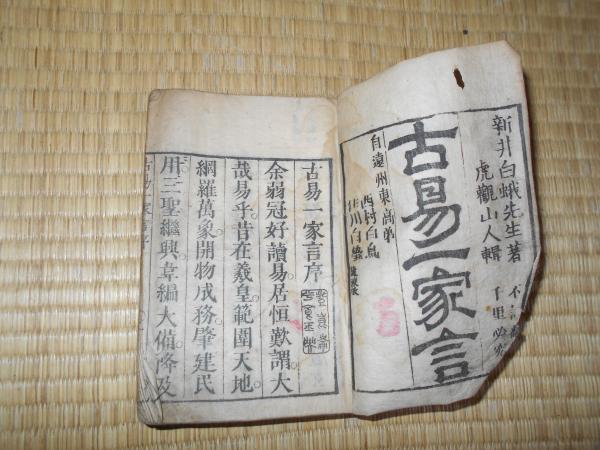 新井白蛾先生著
虎觀山人輯
千里必究
古易一家言
自遠州東高弟
西村白烏
古易一家言序
余弱冠好讀易居恒歎謂大
哉易乎昔在羲皇範圍天地
網羅萬象開物成務肇建民
用三聖繼興韋編大備降及
古易一家言序